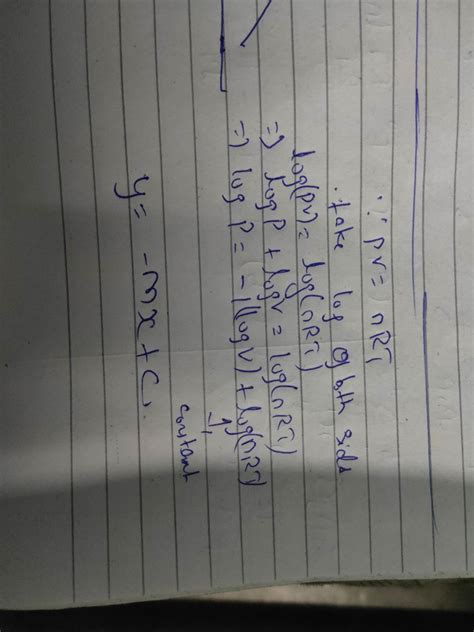 ∵ pv = nRT
take log of both side
log(pv) = log(nRT)
=> log P + log V = log(nRT)
=> log P = -1(log V) + log(nRT)
contant
y = -mx + c.